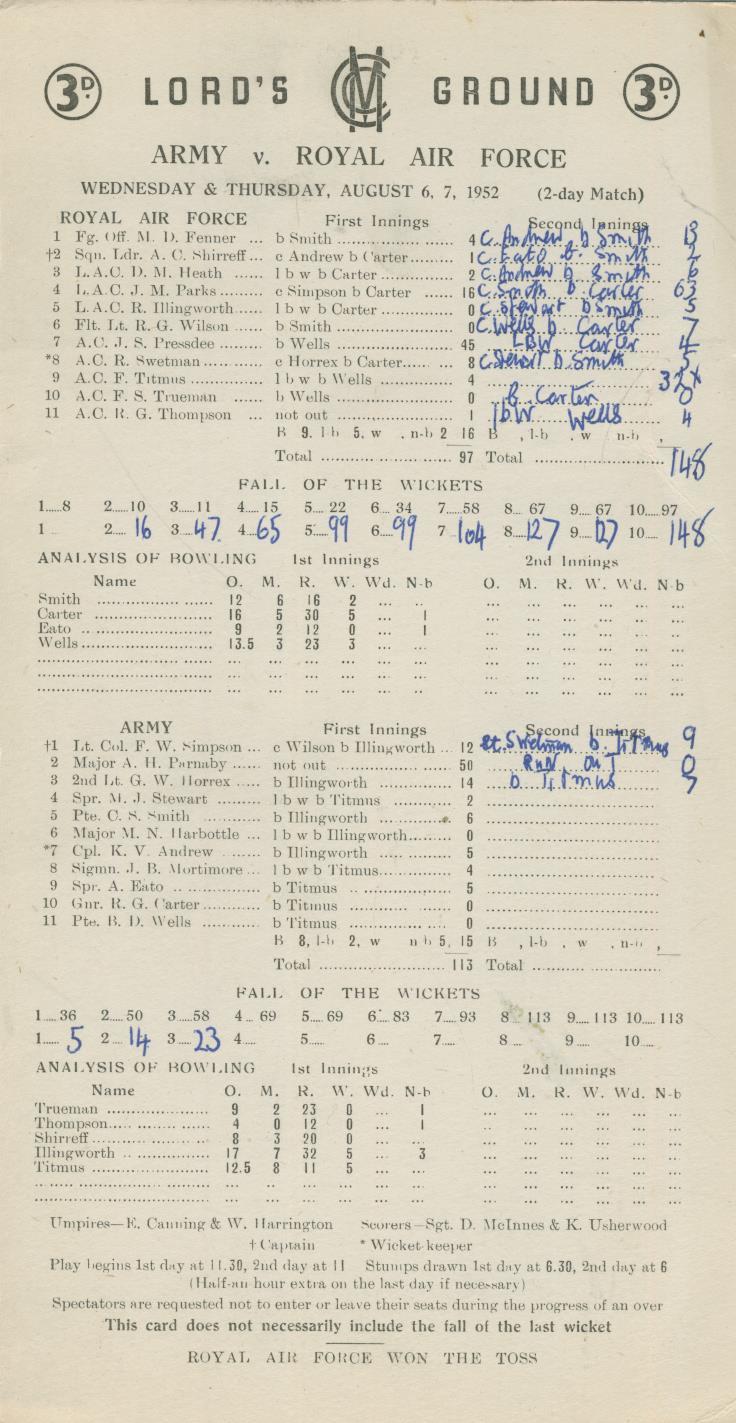 3D. LORD'S MCC GROUND 3D.
ARMY v. ROYAL AIR FORCE
WEDNESDAY & THURSDAY, AUGUST 6, 7, 1952 (2-day Match)
ROYAL AIR FORCE First Innings Second Innings
1 Fg. Off. M. D. Fenner ... b Smith ..................... 4 C. Andrew b Smith 13
†2 Sqn. Ldr. A. C. Shirreff... c Andrew b Carter......... 1 C. Eato b. Smith 2
3 L.A.C. D. M. Heath ...... l b w b Carter............... 2 C. Andrew b Smith 6
4 L.A.C. J. M. Parks ...... c Simpson b Carter ...... 16 C. Smith b. Carter 63
5 L.A.C. R. Illingworth...... l b w b Carter............... 0 C. Stewart b Smith 5
6 Flt. Lt. R. G. Wilson ...... b Smith ..................... 0 C. Wells b. Carter 7
7 A.C. J. S. Pressdee ...... b Wells ..................... 45 LBW Carter 4
*8 A.C. R. Swetman ............ c Horrex b Carter...... 8 C. Stewart b. Smith 5
9 A.C. F. Titmus ............... l b w b Wells ............... 4 32x
10 A.C. F. S. Trueman ...... b Wells ..................... 0 b. Carter 0
11 A.C. R. G. Thompson ... not out ..................... 1 lbw Wells 4
B 9, l-b 5, w , n-b 2 16 B , l-b , w n-b ,
Total ........................ 97 Total ........................ 148
FALL OF THE WICKETS
1.....8 2.....10 3.....11 4.....15 5.... 22 6.... 34 7.....58 8... 67 9.... 67 10....97
1 2.... 16 3....47 4....65 5....99 6....99 7 104 8....127 9....127 10.... 148
ANALYSIS OF BOWLING 1st Innings 2nd Innings
Name O. M. R. W. Wd. N-b O. M. R. W. Wd. N-b
Smith ..................... 12 6 16 2 ... ..
Carter ..................... 16 5 30 5 ... 1
Eato ........................ 9 2 12 0 ... 1
Wells........................ 13.5 3 23 3 ... ...
ARMY First Innings Second Innings
†1 Lt. Col. F. W. Simpson ... c Wilson b Illingworth .. 12 st. Swetman b. Titmus 9
2 Major A. H. Parnaby ...... not out ..................... 50 Run out 0
3 2nd Lt. G. W. Horrex ..... b Illingworth ............... 14 b Titmus 7
4 Spr. M. J. Stewart ......... l b w b Titmus ............ 2
5 Pte. C. S. Smith ............ b Illingworth ............... 6
6 Major M. N. Harbottle ... l b w b Illingworth......... 0
*7 Cpl. K. V. Andrew ......... b Illingworth ............... 5
8 Sigmn. J. B. Mortimore... l b w b Titmus............... 4
9 Spr. A. Eato .................. b Titmus ..................... 5
10 Gnr. R. G. Carter............ b Titmus ..................... 0
11 Pte. B. D. Wells ............ b Titmus ..................... 0
B 8, l-b 2, w n b 5, 15 B , l-b , w , n-b ,
Total ........................ 113 Total ........................
FALL OF THE WICKETS
1.....36 2.....50 3.....58 4... 69 5.... 69 6.... 83 7.....93 8... 113 9.... 113 10.... 113
1..... 5 2... 14 3.... 23 4.... 5..... 6.... 7..... 8.... 9..... 10.....
ANALYSIS OF BOWLING 1st Innings 2nd Innings
Name O. M. R. W. Wd. N-b O. M. R. W. Wd. N-b
Trueman .................. 9 2 23 0 ... 1
Thompson.................. 4 0 12 0 ... 1
Shirreff..................... 8 3 20 0 ... ...
Illingworth ............... 17 7 32 5 ... 3
Titmus ..................... 12.5 8 11 5 ... ...
Umpires—E. Canning & W. Harrington Scorers—Sgt. D. McInnes & K. Usherwood
† Captain * Wicket-keeper
Play begins 1st day at 11.30, 2nd day at 11 Stumps drawn 1st day at 6.30, 2nd day at 6
(Half-an hour extra on the last day if necessary)
Spectators are requested not to enter or leave their seats during the progress of an over
This card does not necessarily include the fall of the last wicket
ROYAL AIR FORCE WON THE TOSS